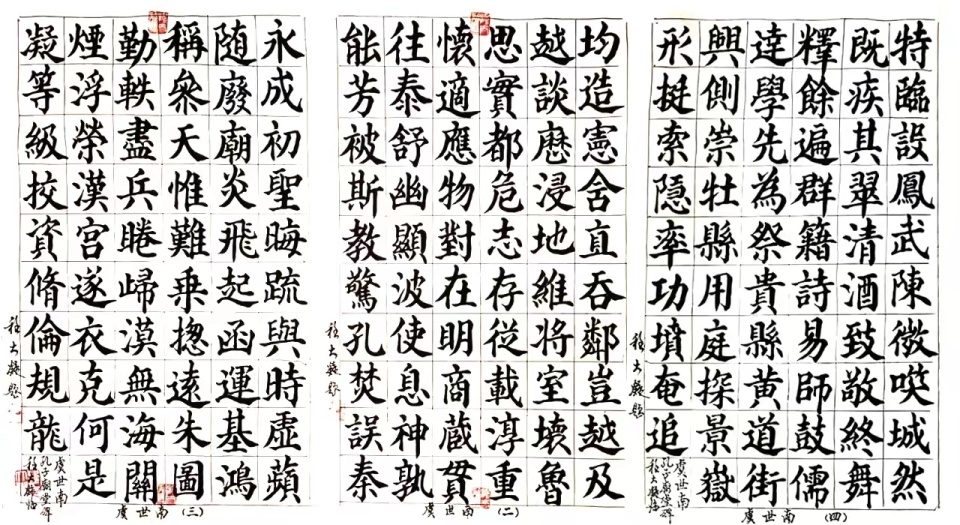 特臨設鳳武陳徵喫城然
既疾其翠清酒致敬終舞
釋餘遍群籍詩易師鼓儒
達學先為祭貴縣黃道街
興側崇牡縣用庭探景嶽
形挺索隱率功墳奄追
虞世南
孔子廟堂碑
虞世南 (四)
均造憲舍直吞鄰豈越及
越談曆浸地維將室壞魯
思實都危志存從載淳重
懷適應物對在明商蔵貫
往泰舒幽顯波使息神孰
能芳被斯教驚孔焚誤秦
虞世南 (二)
永成初聖晦疏與時虛蘋
随廢廟炎飛起函運基鴻
稱叅天惟難乗揔遠朱圖
勤軼盡兵睠歸漠無海關
煙浮榮漢宮遂衣克何是
凝等級挍資脩倫規龍
虞世南
孔子廟堂碑
虞世南 (三)